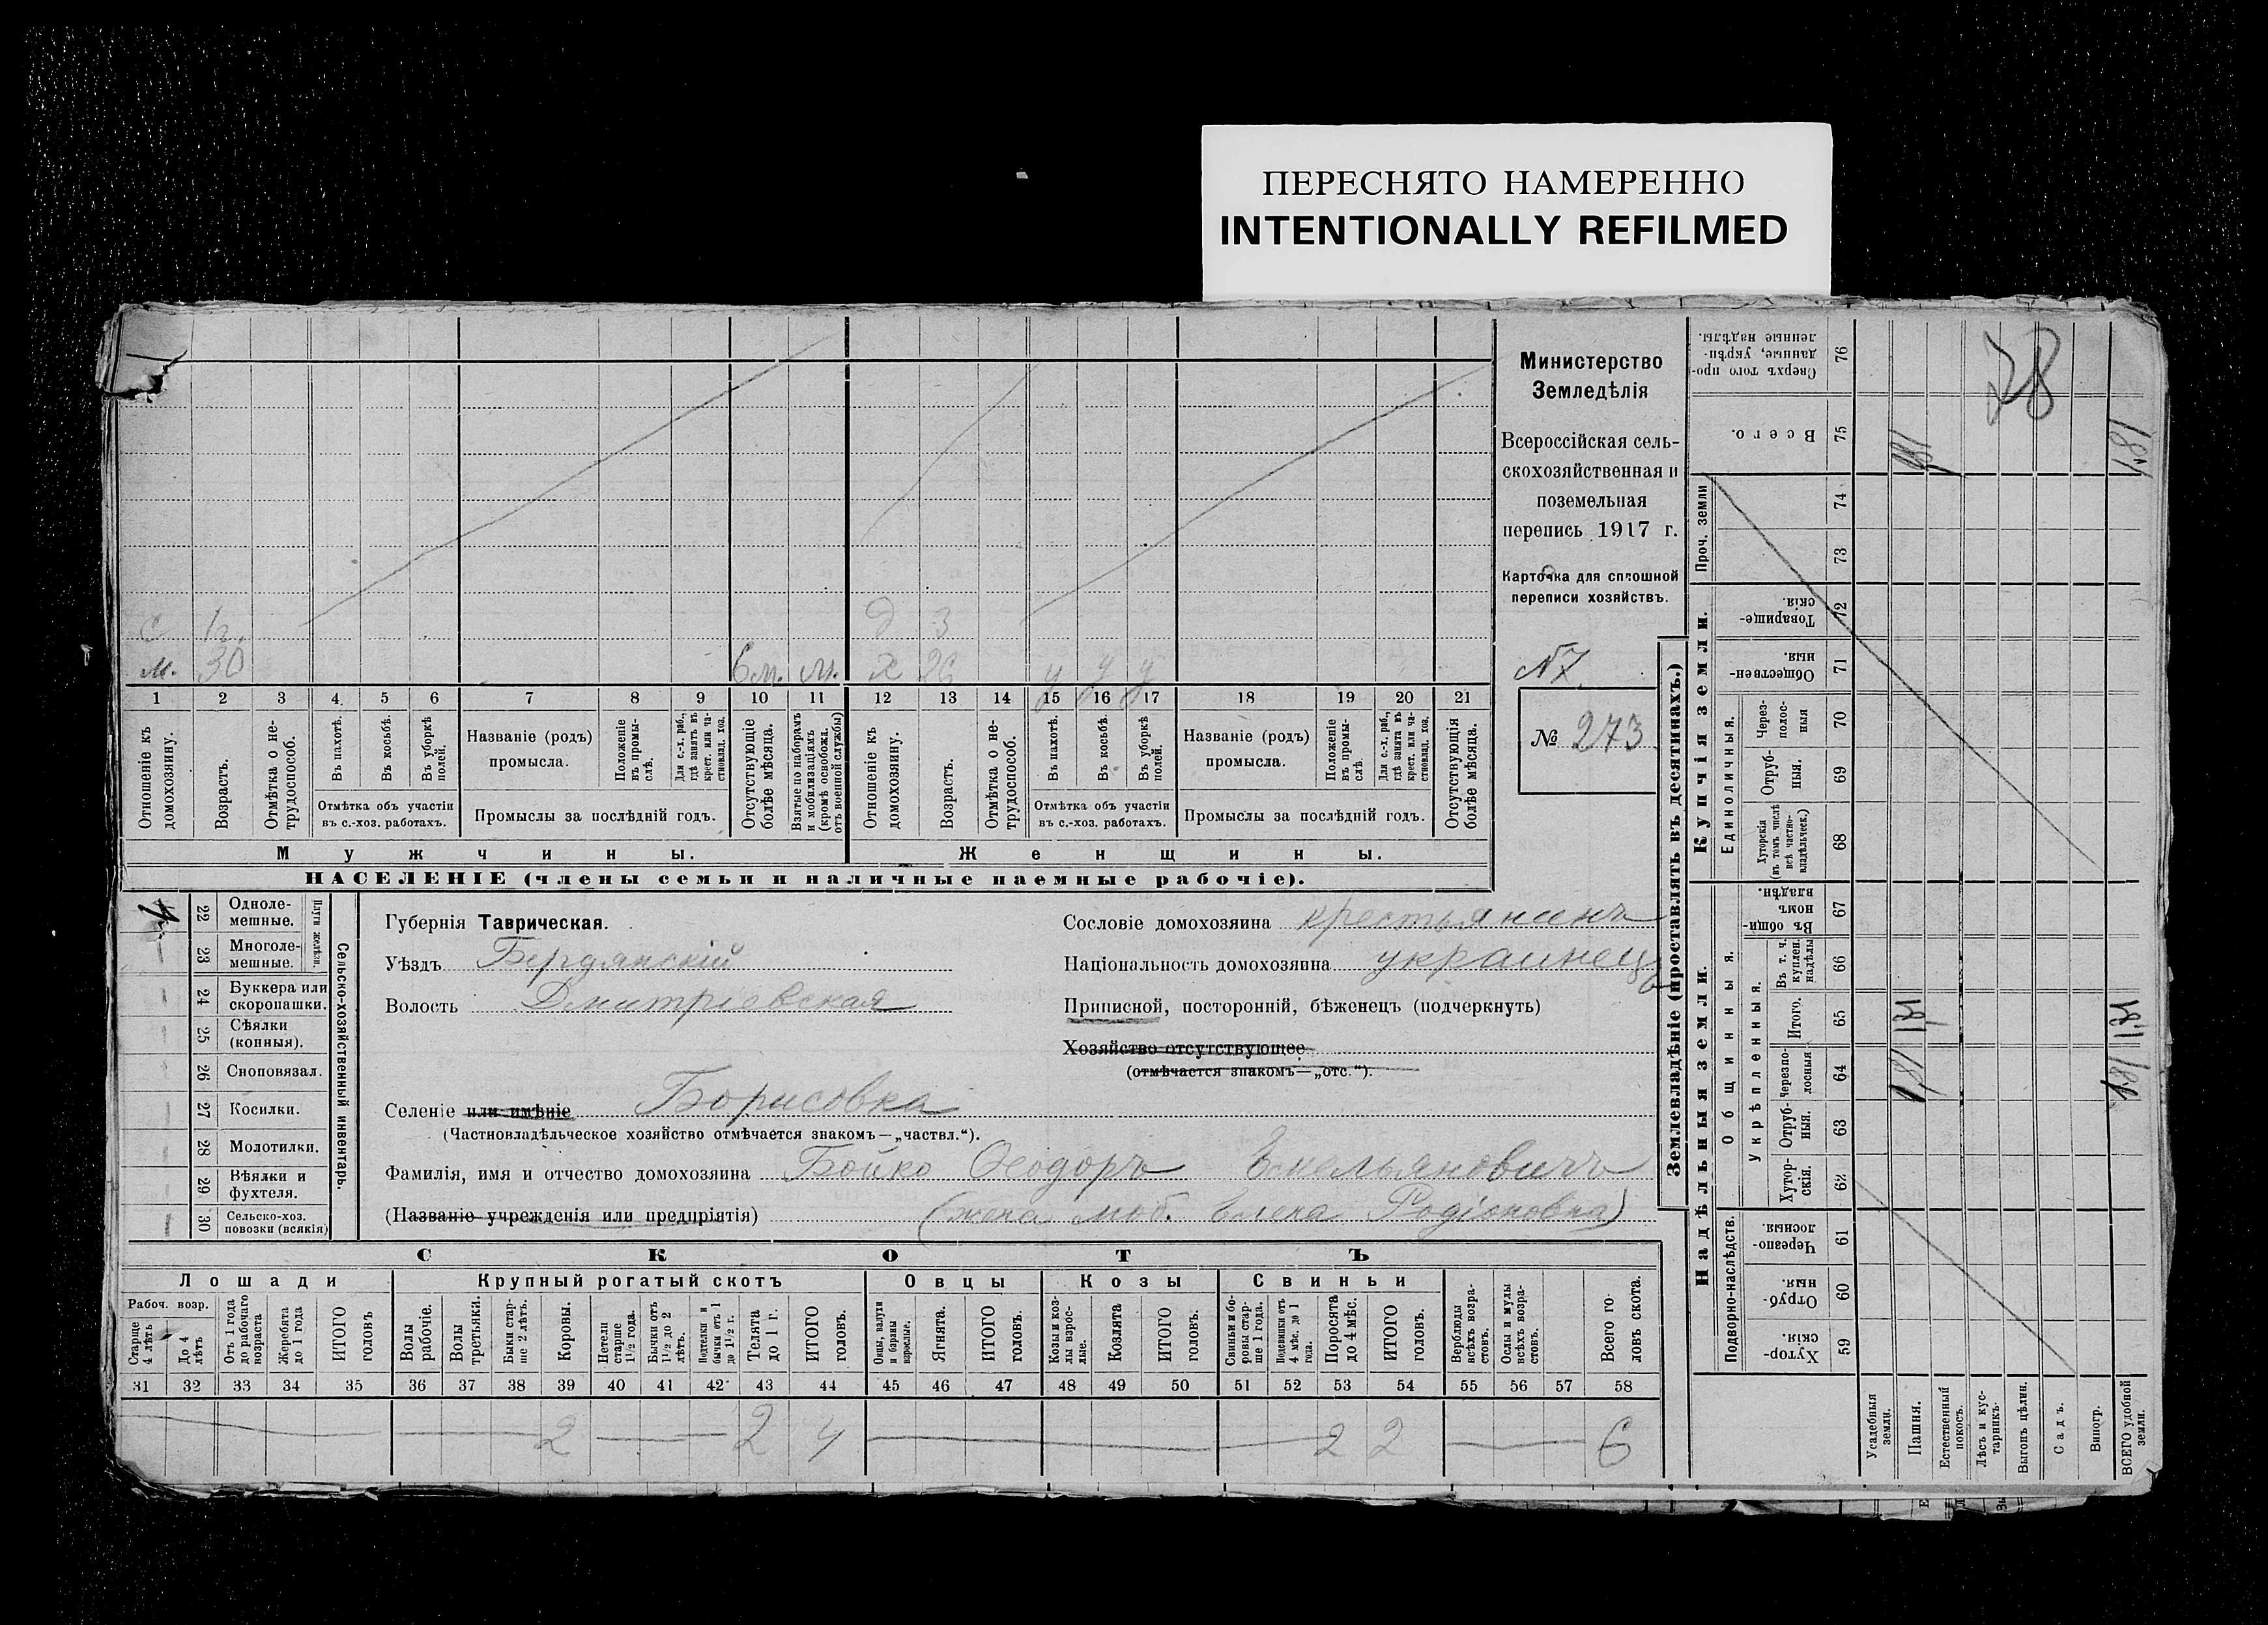 ПЕРЕСНЯТО НАМЕРЕННО
INTENTIONALLY REFILMED
Министерство
Земледѣлія
Всероссійская сель-
скохозяйственная и
поземельная
перепись 1917 г.
Карточка для сплошной
переписи хозяйствъ.
№ 273
с 1 г. д 3
м. 30 6 м. м. х 26 у у у
1 2 3 4 5 6 7 8 9 10 11 12 13 14 15 16 17 18 19 20 21
Отношеніе къ домохозяину.
Возрастъ.
Отмѣтка о не-трудоспособ.
Въ пахотѣ.
Въ косьбѣ.
Въ уборкѣ полей.
Отмѣтка объ участіи въ с.-хоз. работахъ.
Названіе (родъ) промысла.
Положеніе въ промы-слѣ.
Для с.-х. раб., гдѣ занятъ въ крест. или ча-стновлад. хоз.
Промыслы за послѣдній годъ.
Отсутствующіе болѣе мѣсяца.
Взятые по наборамъ и мобилизаціямъ (кромѣ освобожд. отъ военной службы)
Отношеніе къ домохозяину.
Возрастъ.
Отмѣтка о не-трудоспособ.
Въ пахотѣ.
Въ косьбѣ.
Въ уборкѣ полей.
Отмѣтка объ участіи въ с.-хоз. работахъ.
Названіе (родъ) промысла.
Положеніе въ промы-слѣ.
Для с.-х. раб., гдѣ занята въ крест. или ча-стновлад. хоз.
Промыслы за послѣдній годъ.
Отсутствующія болѣе мѣсяца.
Мужчины. Женщины.
НАСЕЛЕНІЕ (члены семьи и наличные наемные рабочіе).
Сельско-хозяйственный инвентарь.
Плуги желѣзн.
22 Одноле-мешные.
23 Многоле-мешные.
24 Буккера или скоропашки.
25 Сѣялки (конныя).
26 Сноповязал.
27 Косилки.
28 Молотилки.
29 Вѣялки и фухтеля.
30 Сельско-хоз. повозки (всякія)
Губернія Таврическая.
Уѣздъ Бердянскій
Волость Дмитріевская
Селеніе или имѣніе Борисовка
(Частновладѣльческое хозяйство отмѣчается знакомъ—„частвл.“).
Сословіе домохозяина крестьянинъ
Національность домохозяина украинецъ
Приписной, посторонній, бѣженецъ (подчеркнуть)
Хозяйство отсутствующее
(отмѣчается знакомъ—„отс.“).
Фамилія, имя и отчество домохозяина Бойко Ѳеодоръ Емельяновичъ
(Названіе учрежденія или предпріятія) (жена моб. Елена Родіоновна)
СКОТЪ
Лошади Крупный рогатый скотъ Овцы Козы Свиньи
Рабоч. возр.
Старше 4 лѣтъ
До 4 лѣтъ
Отъ 1 года до рабочаго возраста
Жеребята до 1 года
ИТОГО головъ
Волы рабочіе.
Волы третьяки.
Быки стар-ше 2 лѣтъ.
Коровы.
Нетели старше 1 1/2 года.
Бычки отъ 1 1/2 до 2 лѣтъ.
Подтелки и бычки отъ 1 до 1 1/2 г.
Телята до 1 г.
ИТОГО головъ.
Овцы, валухи и бараны взрослые.
Ягнята.
ИТОГО головъ.
Козы и коз-лы взрос-лые.
Козлята
ИТОГО головъ.
Свиньи и бо-ровы стар-ше 1 года.
Подсвинки отъ 4 мѣс. до 1 года.
Поросята до 4 мѣс.
ИТОГО головъ.
Верблюды всѣхъ возра-стовъ.
Ослы и мулы всѣхъ возра-стовъ.
Всего го-ловъ скота.
31 32 33 34 35 36 37 38 39 40 41 42 43 44 45 46 47 48 49 50 51 52 53 54 55 56 57 58
2 2 4 2 2 6
Землевладѣніе (проставлять въ десятинахъ.)
Надѣльныя земли. Купчія земли.
Подворно-наслѣдств.
Общинныя.
Укрѣпленныя.
Единоличныя.
Проч. земли
59 Хутор-скія.
60 Отруб-ныя.
61 Черезпо-лосныя
62 Хутор-скія.
63 Отруб-ныя.
64 Черезпо-лосныя
65 Итого.
66 Въ т. ч. куплен. надѣлы
67 Въ общин-номъ владѣн.
68 Хуторскія (въ томъ числѣ всѣ частно-владѣльческ.)
69 Отруб-ныя.
70 Через-полос-ныя
71 Обществен-ныя.
72 Товарище-скія.
73
74
75 Всего.
76 Сверхъ того про-данные, укрѣп-ленные надѣлы.
Усадебныя земли.
Пашня.
Естественный покосъ.
Лѣсъ и кус-тарникъ.
Выгонъ цѣлин.
Садъ.
Виногр.
ВСЕГО удобной земли.
28